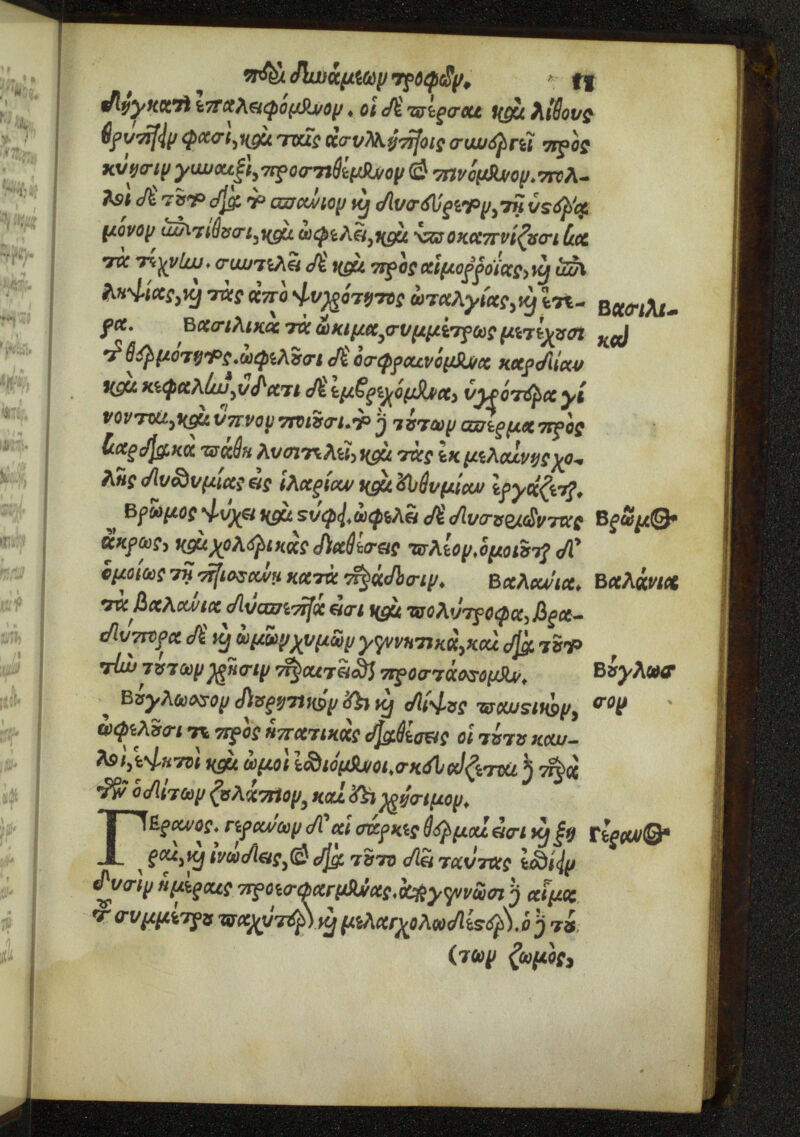 περὶ δυνάμεων τροφῶν. 11
δήγματι ἐπαλειφόμενον. οἱ δὲ πέρσαι καὶ λίθους
θρύπτειν φασὶ, καὶ ταῖς ἀσυλλήπτοις συνεργεῖ πρὸς
κύησιν γυναιξὶ, προστιθέμενον καὶ πινόμενον. πολ-
λοὶ δὲ τοῦτο διὰ τὸ σπάνιον καὶ δυσεύρετον, τῇ ὑστέρᾳ
μόνον ἐπιτιθοῦσι, καὶ ὠφελεῖ, καὶ ὑποκαπνίζουσι κα
τὰ τέχνην. συντελεῖ δὲ καὶ πρὸς αἱμοῤῥοίας, καὶ ἐπι
ληψίας, καὶ τὰς ἀπὸ ψυχρότητος ὠταλγίας, καὶ ἕτε-
ρα. Βασιλικὰ τὰ ὤκιμα, συμμέτρως μετέχουσι
Βασιλι-
καὶ
τῆς θερμότητος. ὠφελοῦσι δὲ ὀσφραινόμενα καρδίαν
καὶ κεφαλὴν, ὕδατι δὲ ἐμβρεχόμενα, ὑγρότερα γί
νονται, καὶ ὕπνον ποιοῦσι. τὸ δὲ τούτων σπέρμα πρὸς
καρδιακὰ πάθη λυσιτελεῖ, καὶ τὰς ἐκ μελαίνης χο-
λῆς δυσθυμίας εἰς ἱλαρίαν καὶ εὐθυμίαν ἐργάζεται.
Βρῶμος ψύχει καὶ στύφει. ὠφελεῖ δὲ δυσουριῶντας
Βρῶμος
ἄκρως, καὶ χολερικὰς διαθέσεις πλέον. ὁμοιοῦται δ'
ὁμοίως τῇ πτισάνῃ κατὰ παράδοσιν. Βαλάνια.
Βαλάνια
τὰ βαλάνια δύσπεπτά εἰσι καὶ πολύτροφα, βρα-
δύπορα δὲ καὶ ὠμῶν χυμῶν γεννητικὰ, καὶ διὰ τοῦτο
τὴν τούτων χρῆσιν παραιτεῖσθαι προστάσσομεν.
Βούγλωσ
σον
Βούγλωσσον διουρητικόν ἐστι καὶ δίψους παυστικὸν,
ὠφελοῦσι τε πρὸς ἡπατικὰς διαθέσεις οἱ τούτου καυ-
λοὶ, ἑψητοὶ καὶ ὠμοὶ ἐσθιόμενοι. σκευάζεται δὲ παρὰ
τῶν ὁδίτων ζουλάπιον, καὶ ἔστι χρήσιμον.
Γέρανος. γεράνων δ' αἱ σάρκες θερμαί εἰσι καὶ ξη
Γέρανος
ραὶ, καὶ ἰνώδεις, καὶ διὰ τοῦτο δεῖ ταύτας ἐσθίειν
δυσὶν ἡμέραις προεσφαγμένας. ἀπογεννῶσι δὲ αἷμα
τοῦ συμμέτρου παχύτερον καὶ μελαγχολωδέστερον. ὁ δὲ τού
(των ζωμὸς,